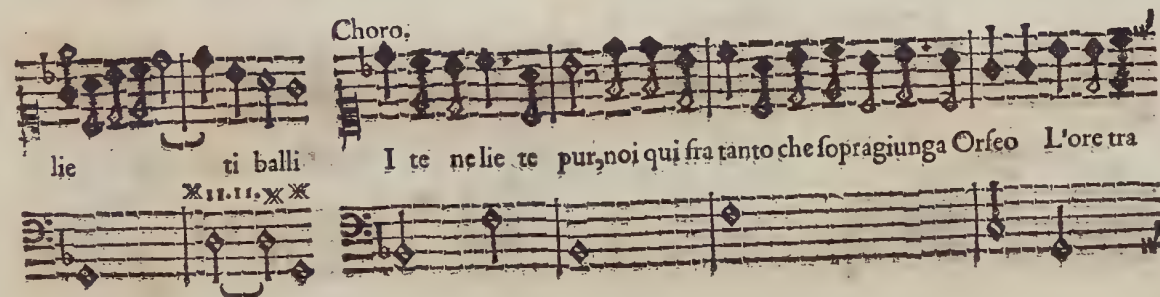 Choro.
lie ti balli I te ne lie te pur, noi qui fra tanto che sopragiunga Orfeo L'ore tra
11.11.